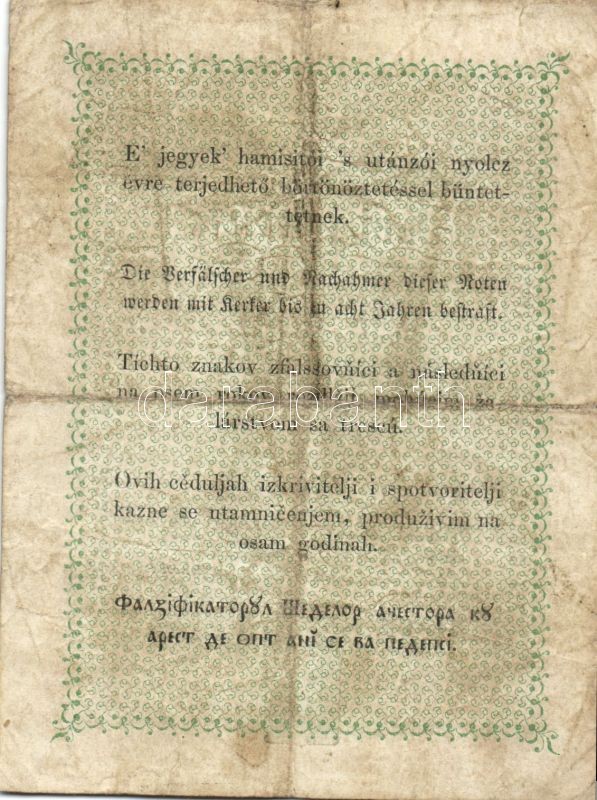 E' jegyek' hamisitói 's utánzói nyolcz
évre terjedhető börtönöztetéssel büntet-
tetnek.
Die Verfälscher und Nachahmer dieser Noten
werden mit Kerker bis zu acht Jahren bestraft.
Tíchto znakov zfalssovňíci a následňíci
na osem rokov
lárstvom sa trescú.
Ovih cěduljah izkrivitelji i spotvoritelji
kazne se utamničenjem, produživim na
osam godinah.
Фалꙃіфікаторꙋл Шеделор ачестора кꙋ
арест де опт анĭ се ва педепсі.
databanth